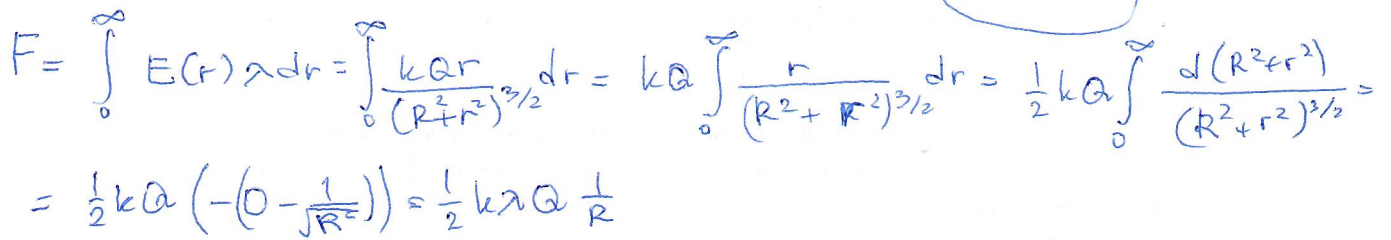 F = ∫₀^∞ E(r) λ dr = ∫₀^∞ kQr/(R²+r²)^(3/2) dr = kQ ∫₀^∞ r/(R²+r²)^(3/2) dr = ½ kQ ∫₀^∞ d(R²+r²)/(R²+r²)^(3/2) =
= ½ kQ (-(0 - 1/√R²)) = ½ kλQ 1/R